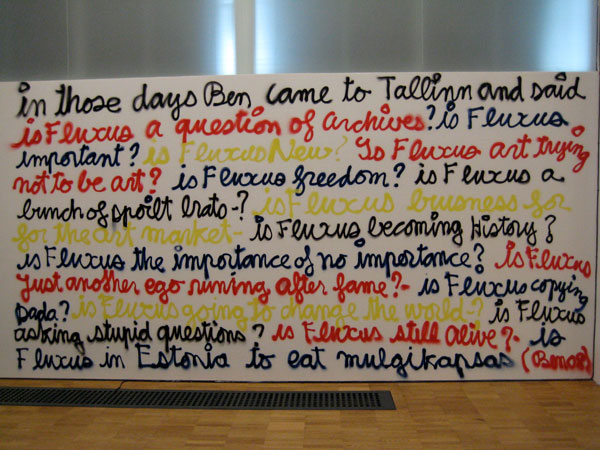 in those days Ben came to Tallinn and said
is Fluxus a question of archives? is Fluxus
important? is Fluxus New? Is Fluxus art trying
not to be art? is Fluxus freedom? is Fluxus a
bunch of spoilt brats-? is Fluxus business for
for the art market- is Fluxus becoming History?
is Fluxus the importance of no importance? is Fluxus
just another ego runing after fame?- is Fluxus copying
Dada? is Fluxus going to change the world-? is Fluxus
asking stupid questions? is Fluxus still alive?- is
Fluxus in Estonia to eat mulgikapsas (Ben08)